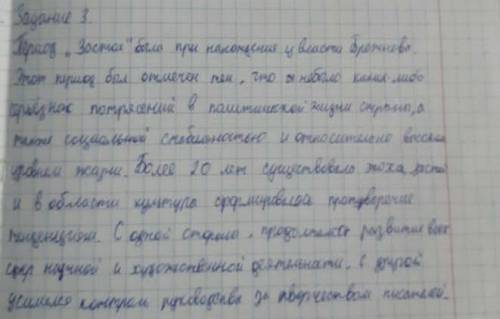 Задание 3.
Период "Застоя" была при нахождения у власти Брежнева.
Этот период был отмечен тем, что не было каких-либо
серьёзных потрясений в политической жизни страны, а
также социальной стабильностью и относительно высоким
уровнем жизни. Более 20 лет существовала эпоха застоя
и в области культура сформировалось противоречие
тенденциям. С одной стороны, продолжалось развитие всех
сфер научной и художественной деятельности, с другой
усилился контроль руководства за творчеством писателей.